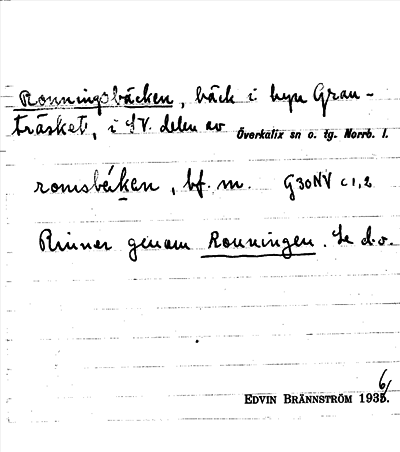 Ronningsbäcken, bäck i byn Gran-
träsket, i SV. delen av Överkalix sn o. tg. Norrb. l.
romsbäkan, bf. m. G30NV c1,2
Rinner genom Ronningen. Se d.o.
EDVIN BRÄNNSTRÖM 1936.